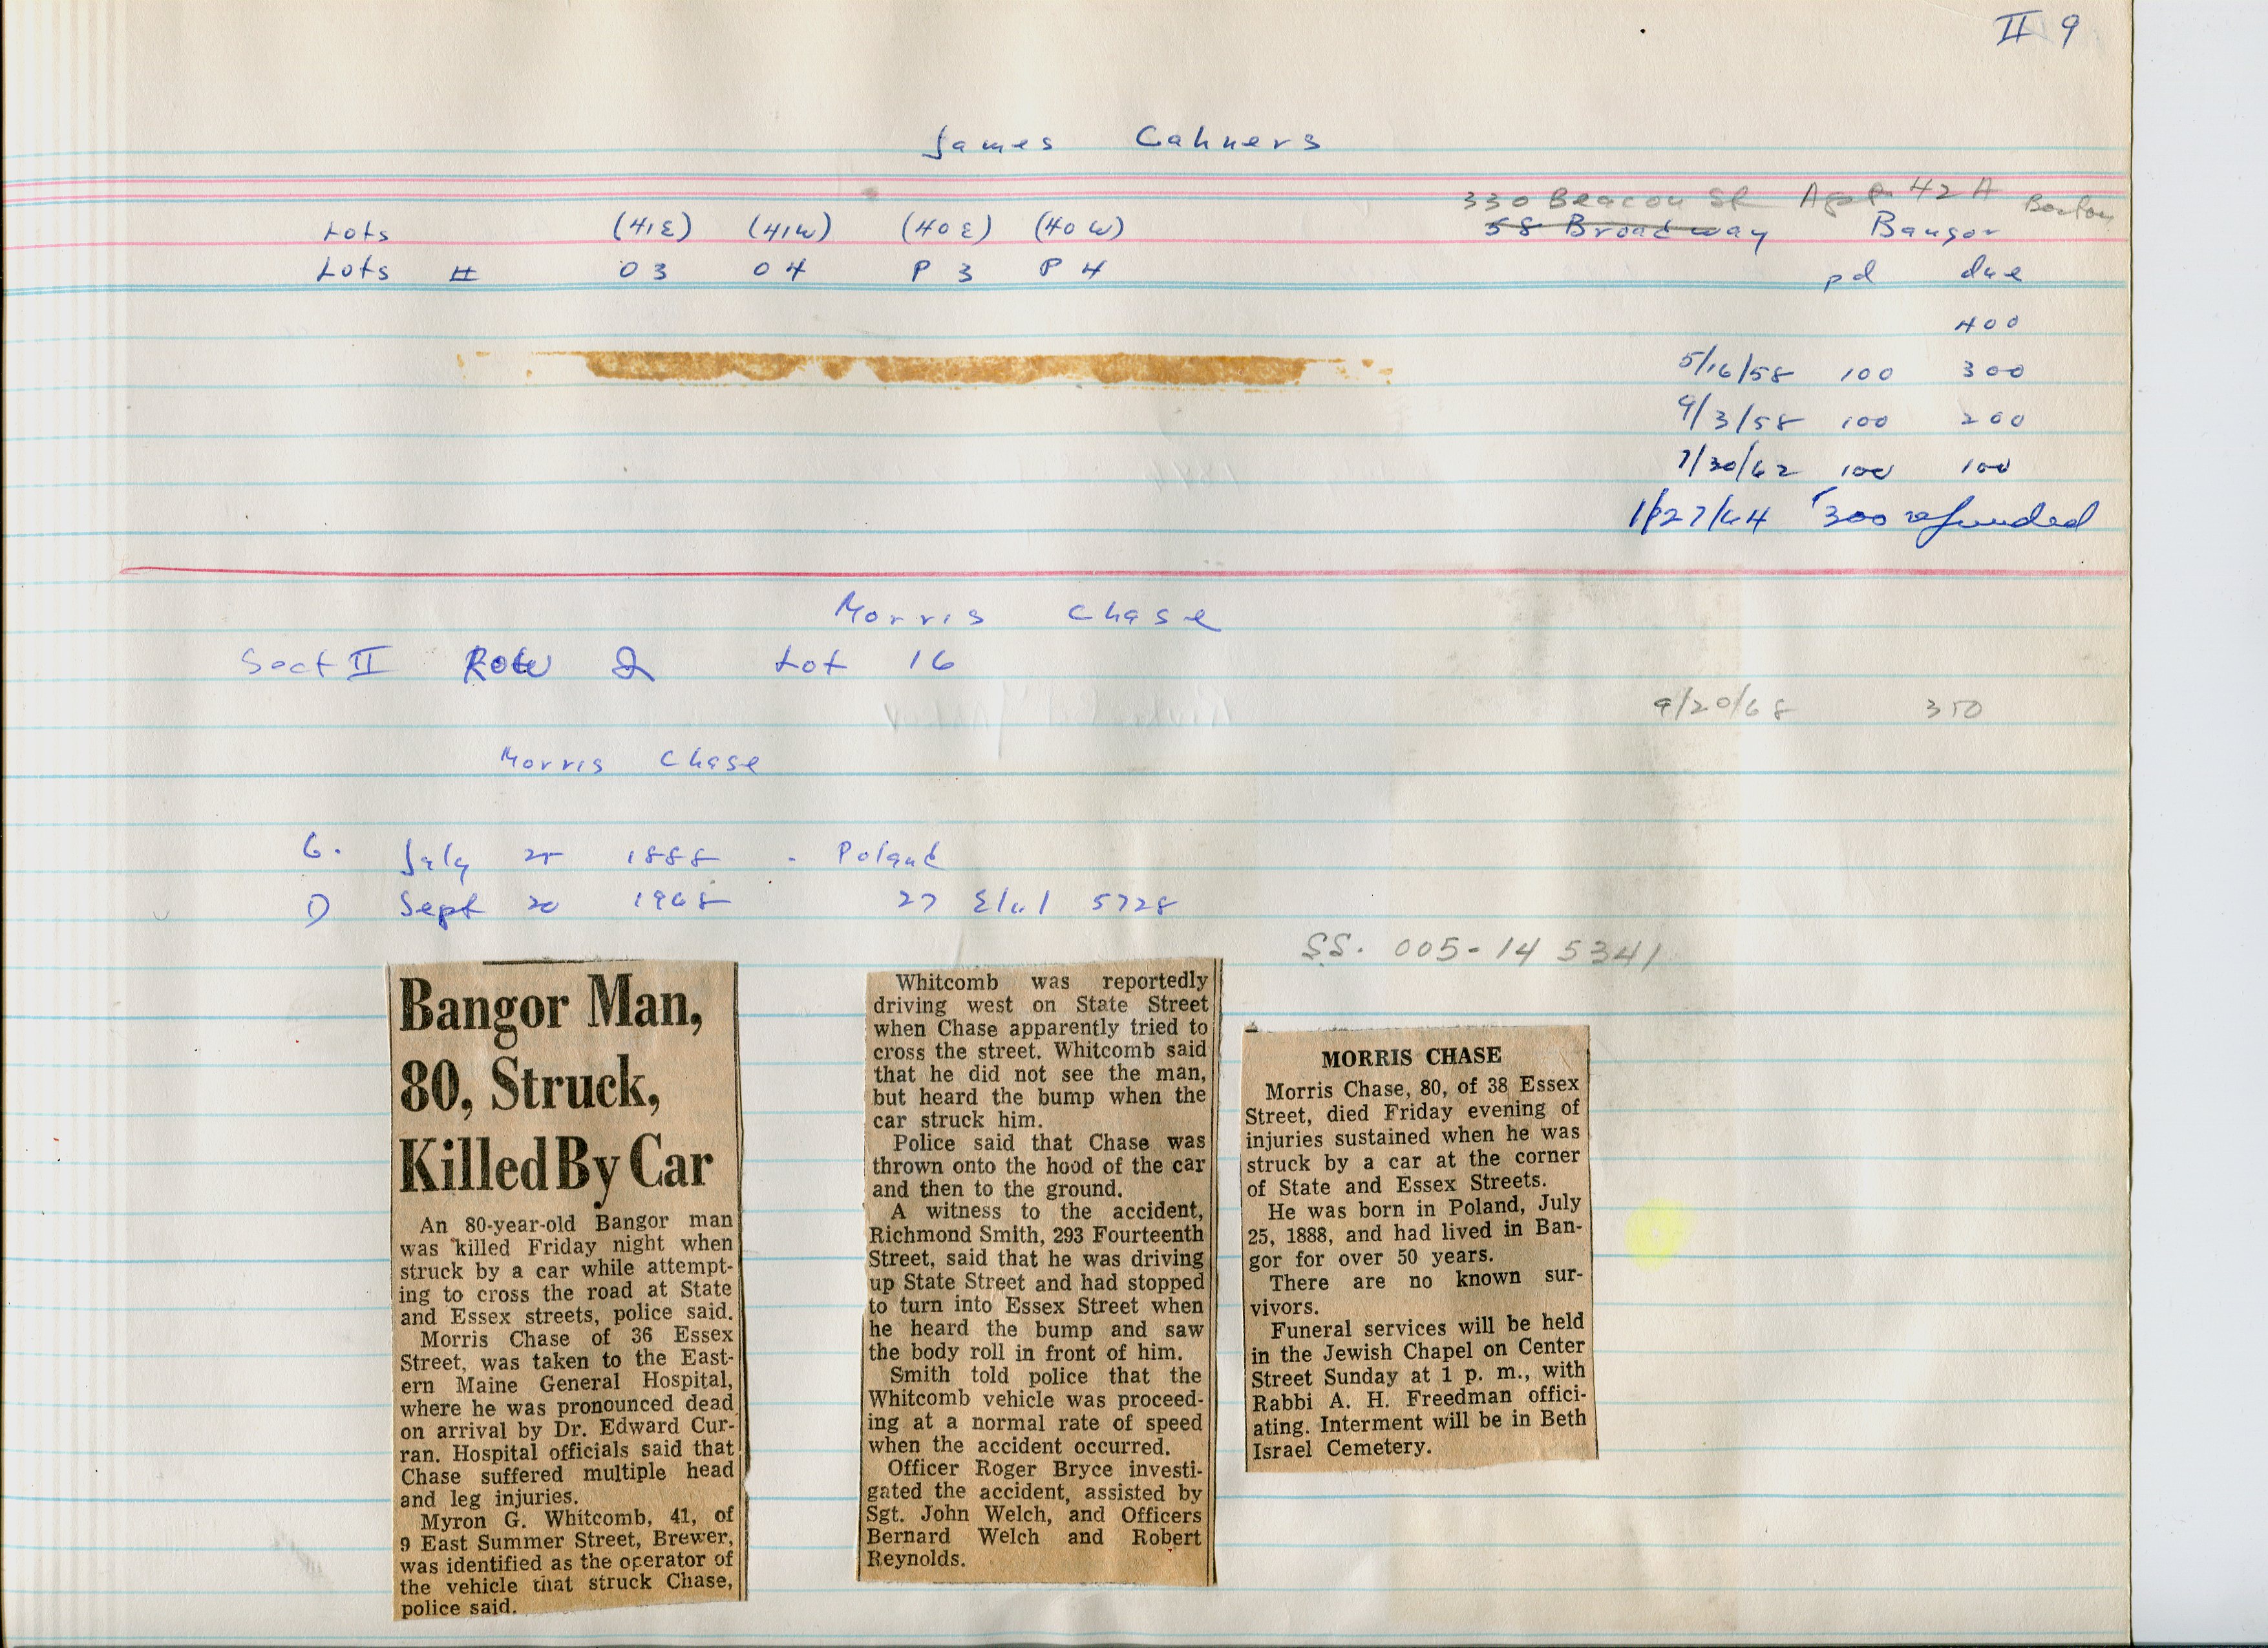 II 9
James Cahners
330 Beacon St Apt 42 A Boston
Lots (41E) (41W) (40E) (40W) 58 Broadway Bangor
Lots II O3 O4 P3 P4 pd due
400
5/16/58 100 300
9/3/58 100 200
7/30/62 100 100
1/27/64 300 refunded
Morris Chase
Sect II Row Lot 16
9/20/68 350
Morris Chase
B. July 25 1888 - Poland
D Sept 20 1968 27 Elul 5728
S.S. 005-14 5341
Bangor Man,
80, Struck,
Killed By Car
An 80-year-old Bangor man
was killed Friday night when
struck by a car while attempt-
ing to cross the road at State
and Essex streets, police said.
Morris Chase of 36 Essex
Street, was taken to the East-
ern Maine General Hospital,
where he was pronounced dead
on arrival by Dr. Edward Cur-
ran. Hospital officials said that
Chase suffered multiple head
and leg injuries.
Myron G. Whitcomb, 41, of
9 East Summer Street, Brewer,
was identified as the operator of
the vehicle that struck Chase,
police said.
Whitcomb was reportedly
driving west on State Street
when Chase apparently tried to
cross the street. Whitcomb said
that he did not see the man,
but heard the bump when the
car struck him.
Police said that Chase was
thrown onto the hood of the car
and then to the ground.
A witness to the accident,
Richmond Smith, 293 Fourteenth
Street, said that he was driving
up State Street and had stopped
to turn into Essex Street when
he heard the bump and saw
the body roll in front of him.
Smith told police that the
Whitcomb vehicle was proceed-
ing at a normal rate of speed
when the accident occurred.
Officer Roger Bryce investi-
gated the accident, assisted by
Sgt. John Welch, and Officers
Bernard Welch and Robert
Reynolds.
MORRIS CHASE
Morris Chase, 80, of 38 Essex
Street, died Friday evening of
injuries sustained when he was
struck by a car at the corner
of State and Essex Streets.
He was born in Poland, July
25, 1888, and had lived in Ban-
gor for over 50 years.
There are no known sur-
vivors.
Funeral services will be held
in the Jewish Chapel on Center
Street Sunday at 1 p. m., with
Rabbi A. H. Freedman offici-
ating. Interment will be in Beth
Israel Cemetery.